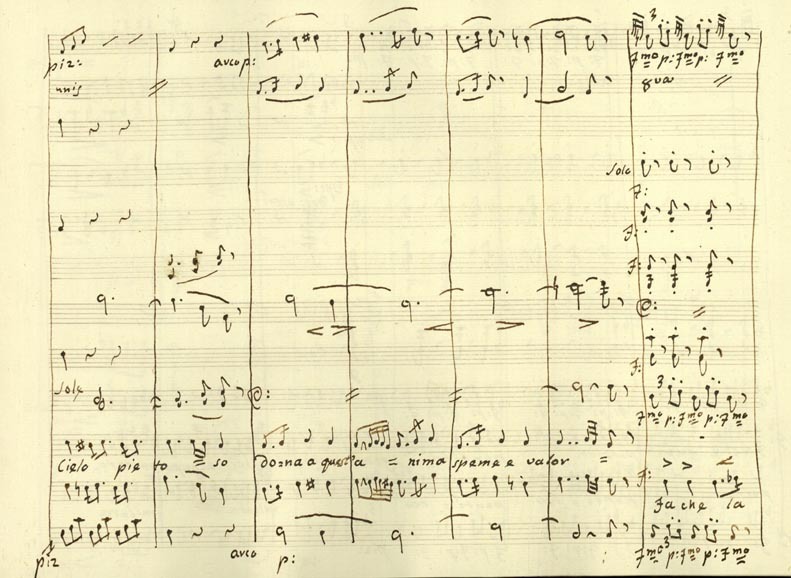 piz: arco p: Fmo p: Fmo p: Fmo
unis 8va
solo
F:
F:
F:
F:
solo Fmo p: Fmo p: Fmo
Cielo pie to = so do=na a quest'a = nima speme e valor =
F:
Fa che la
piz arco p: Fmo p: Fmo p: Fmo